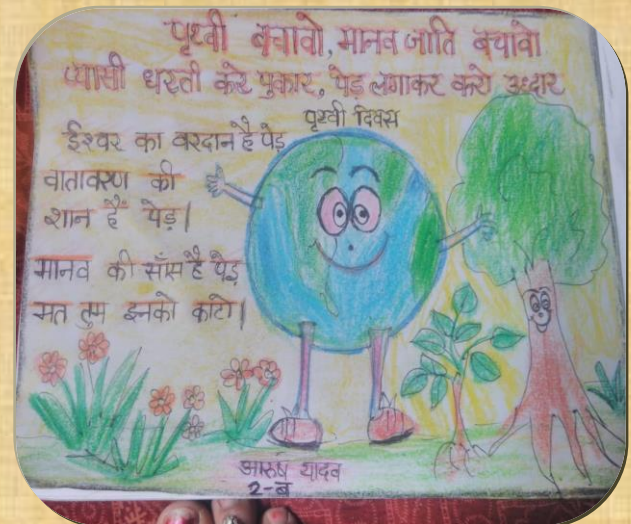 पृथ्वी बचावो, मानव जाति बचावो
प्यासी धरती करे पुकार, पेड़ लगाकर करो उद्धार
पृथ्वी दिवस
ईश्वर का वरदान है पेड़
वातावरण की
शान है पेड़।
मानव की साँस है पेड़
मत तुम इनको काटो।
आरुष यादव
2-ब